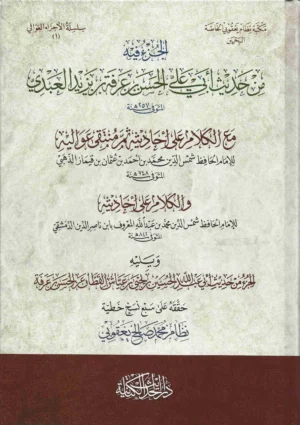 سلسلة الأجزاء العوالي
(١)
مكتبة نظام يعقوبي الخاصة
البحرين
الجزء فيه
من حديث أبي علي الحسن بن عرفة بن يزيد العبدي
المتوفى ٢٥٧ سنة
مع الكلام على أحاديثه ثم منتقى عواليه
للإمام الحافظ شمس الدين محمد بن أحمد بن عثمان بن قيماز الذهبي
المتوفى ٧٤٨ سنة
والكلام على أحاديثه
للإمام الحافظ شمس الدين محمد بن عبد الله المعروف بابن ناصر الدين الدمشقي
المتوفى ٨٤٢ سنة
ويليه
الجزء من حديث أبي عبد الله الحسين بن يحيى بن عياش القطان عن الحسن بن عرفة
حققه على سبع نسخ خطية
نظام محمد صالح يعقوبي
دار الحديث الكتانية